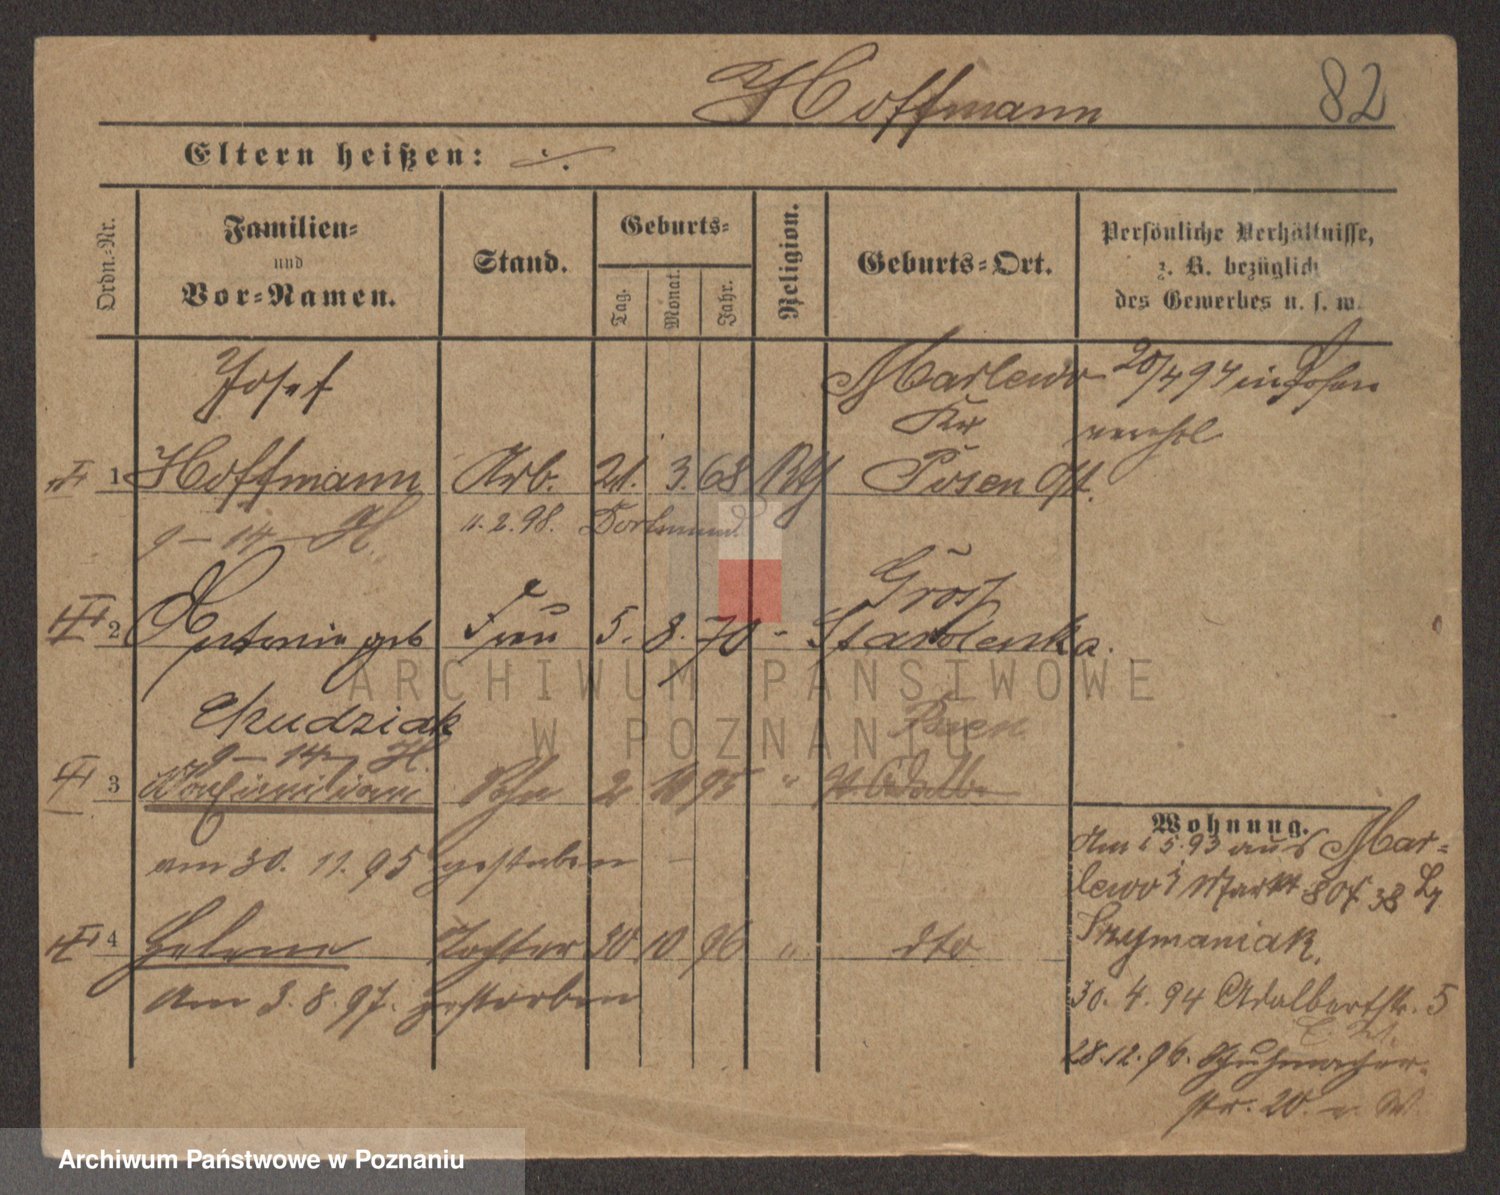 Hoffmann 82
Eltern heißen: ./.
Ordn.-Nr.
Familien-
und
Vor-Namen.
Stand.
Geburts-
Tag.
Monat.
Jahr.
Religion.
Geburts-Ort.
Persönliche Verhältnisse,
z. B. bezüglich
des Gewerbes u. s. w.
Josef Marlewo 20/4 94 in Posen
Kr. verehel
1 Hoffmann Arb. 21. 3. 68 Kth Posen Ost.
9 - 14 - H. 11.2.98. Dortmund
Gross
2 Antonie geb Frau 5. 8. 70 - Starolenka.
Chudziak Posen
9 - 14 - H.
3 Maximilian Sohn 2 10 95 " St. Adalb.
am 30. 11. 95 gestorben
4 Helene Tochter 30 10 96 " dto
Am 3. 8. 97. gestorben
Wohnung.
Am 1 5. 93 aus Mar-
lewo Markt 38
Szymaniak.
30. 4. 94 Adalbertstr. 5
28.12.96. Schuhmacher-
str. 20.
ARCHIWUM PAŃSTWOWE
W POZNANIU
Archiwum Państwowe w Poznaniu